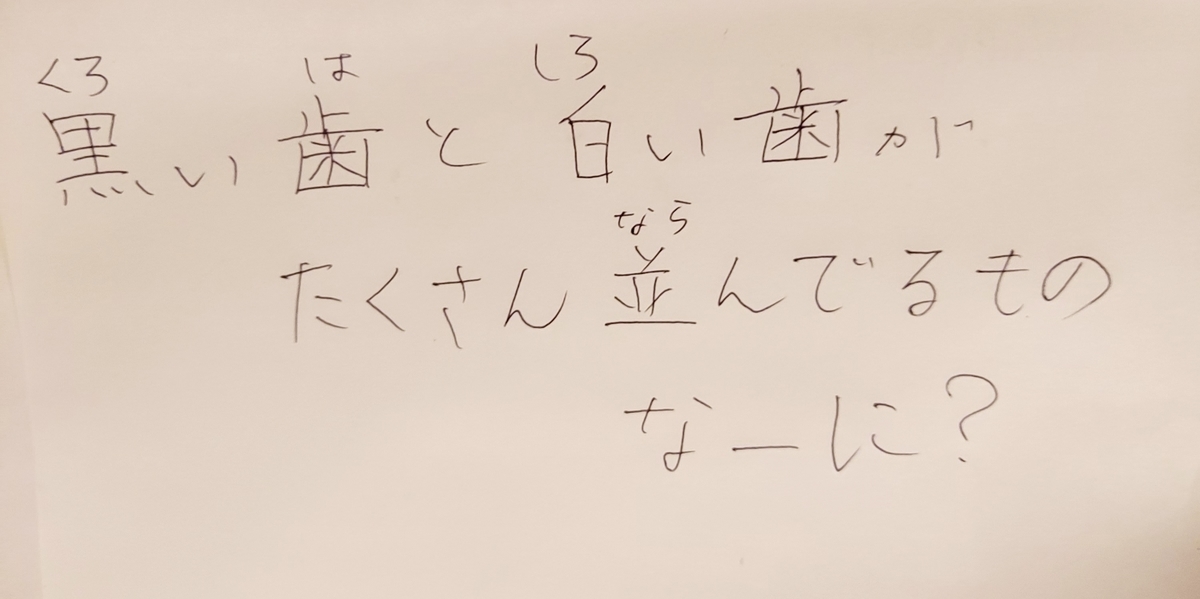 くろ は しろ
黒い歯と白い歯が
なら
たくさん並んでるもの
なーに?